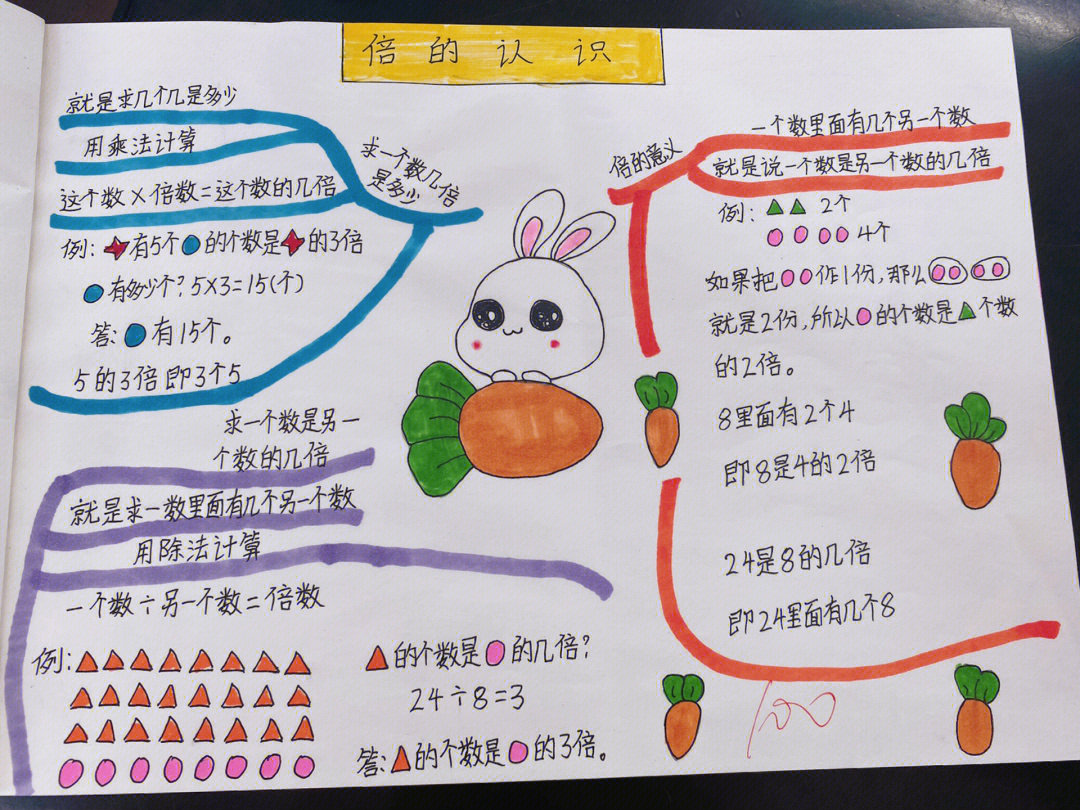 倍的认识
就是求几个几是多少
用乘法计算
这个数×倍数=这个数的几倍
求一个数几倍
是多少
例:有5个的个数是的3倍
有多少个?5×3=15(个)
答:有15个。
5的3倍即3个5
倍的意义
一个数里面有几个另一个数
就是说一个数是另一个数的几倍
例:2个
4个
如果把作1份,那么
就是2份,所以的个数是个数
的2倍。
8里面有2个4
即8是4的2倍
24是8的几倍
即24里面有几个8
求一个数是另一
个数的几倍
就是求一数里面有几个另一个数
用除法计算
一个数÷另一个数=倍数
例:
的个数是的几倍?
24÷8=3
答:的个数是的3倍。
100